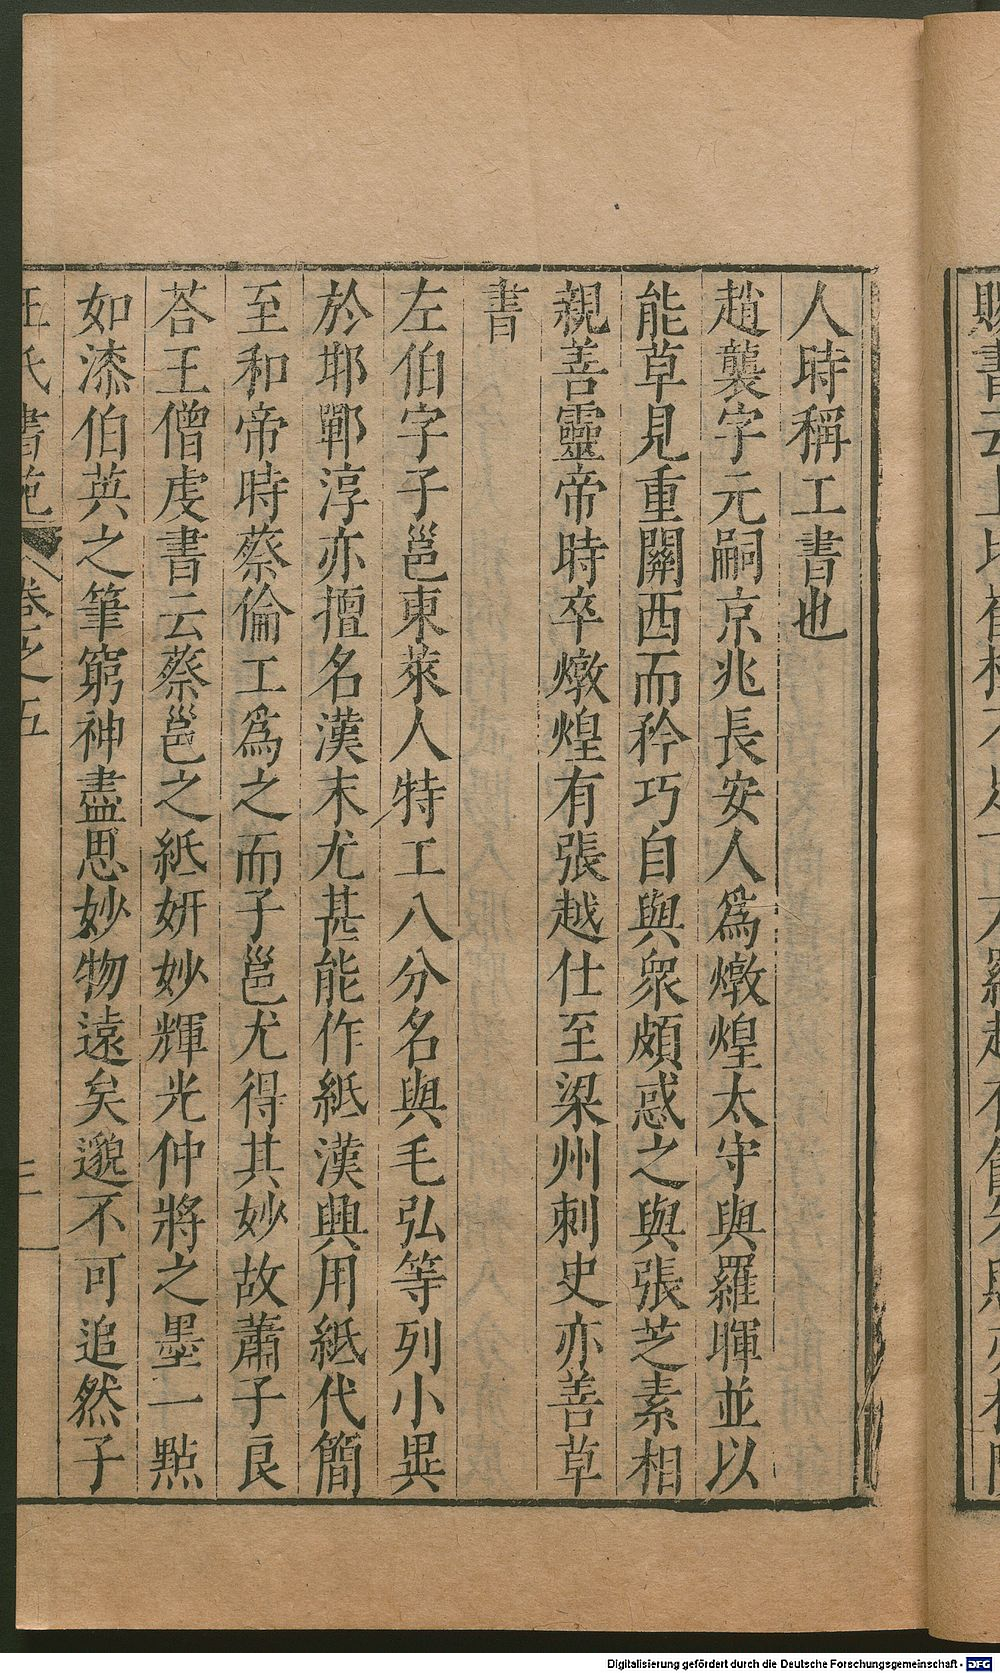 人時稱工書也
趙襲字元嗣京兆長安人爲燉煌太守與羅暉並以
能草見重關西而矜巧自與衆頗惑之與張芝素相
親善靈帝時卒燉煌有張越仕至梁州刺史亦善草
書
左伯字子邕東萊人特工八分名與毛弘等列小異
於邯鄲淳亦擅名漢末尤甚能作紙漢興用紙代簡
至和帝時蔡倫工爲之而子邕尤得其妙故蕭子良
荅王僧虔書云蔡邕之紙妍妙輝光仲將之墨一點
如漆伯英之筆窮神盡思妙物遠矣邈不可追然子
王氏書苑 卷之五 三
Digitalisierung gefördert durch die Deutsche Forschungsgemeinschaft - DFG